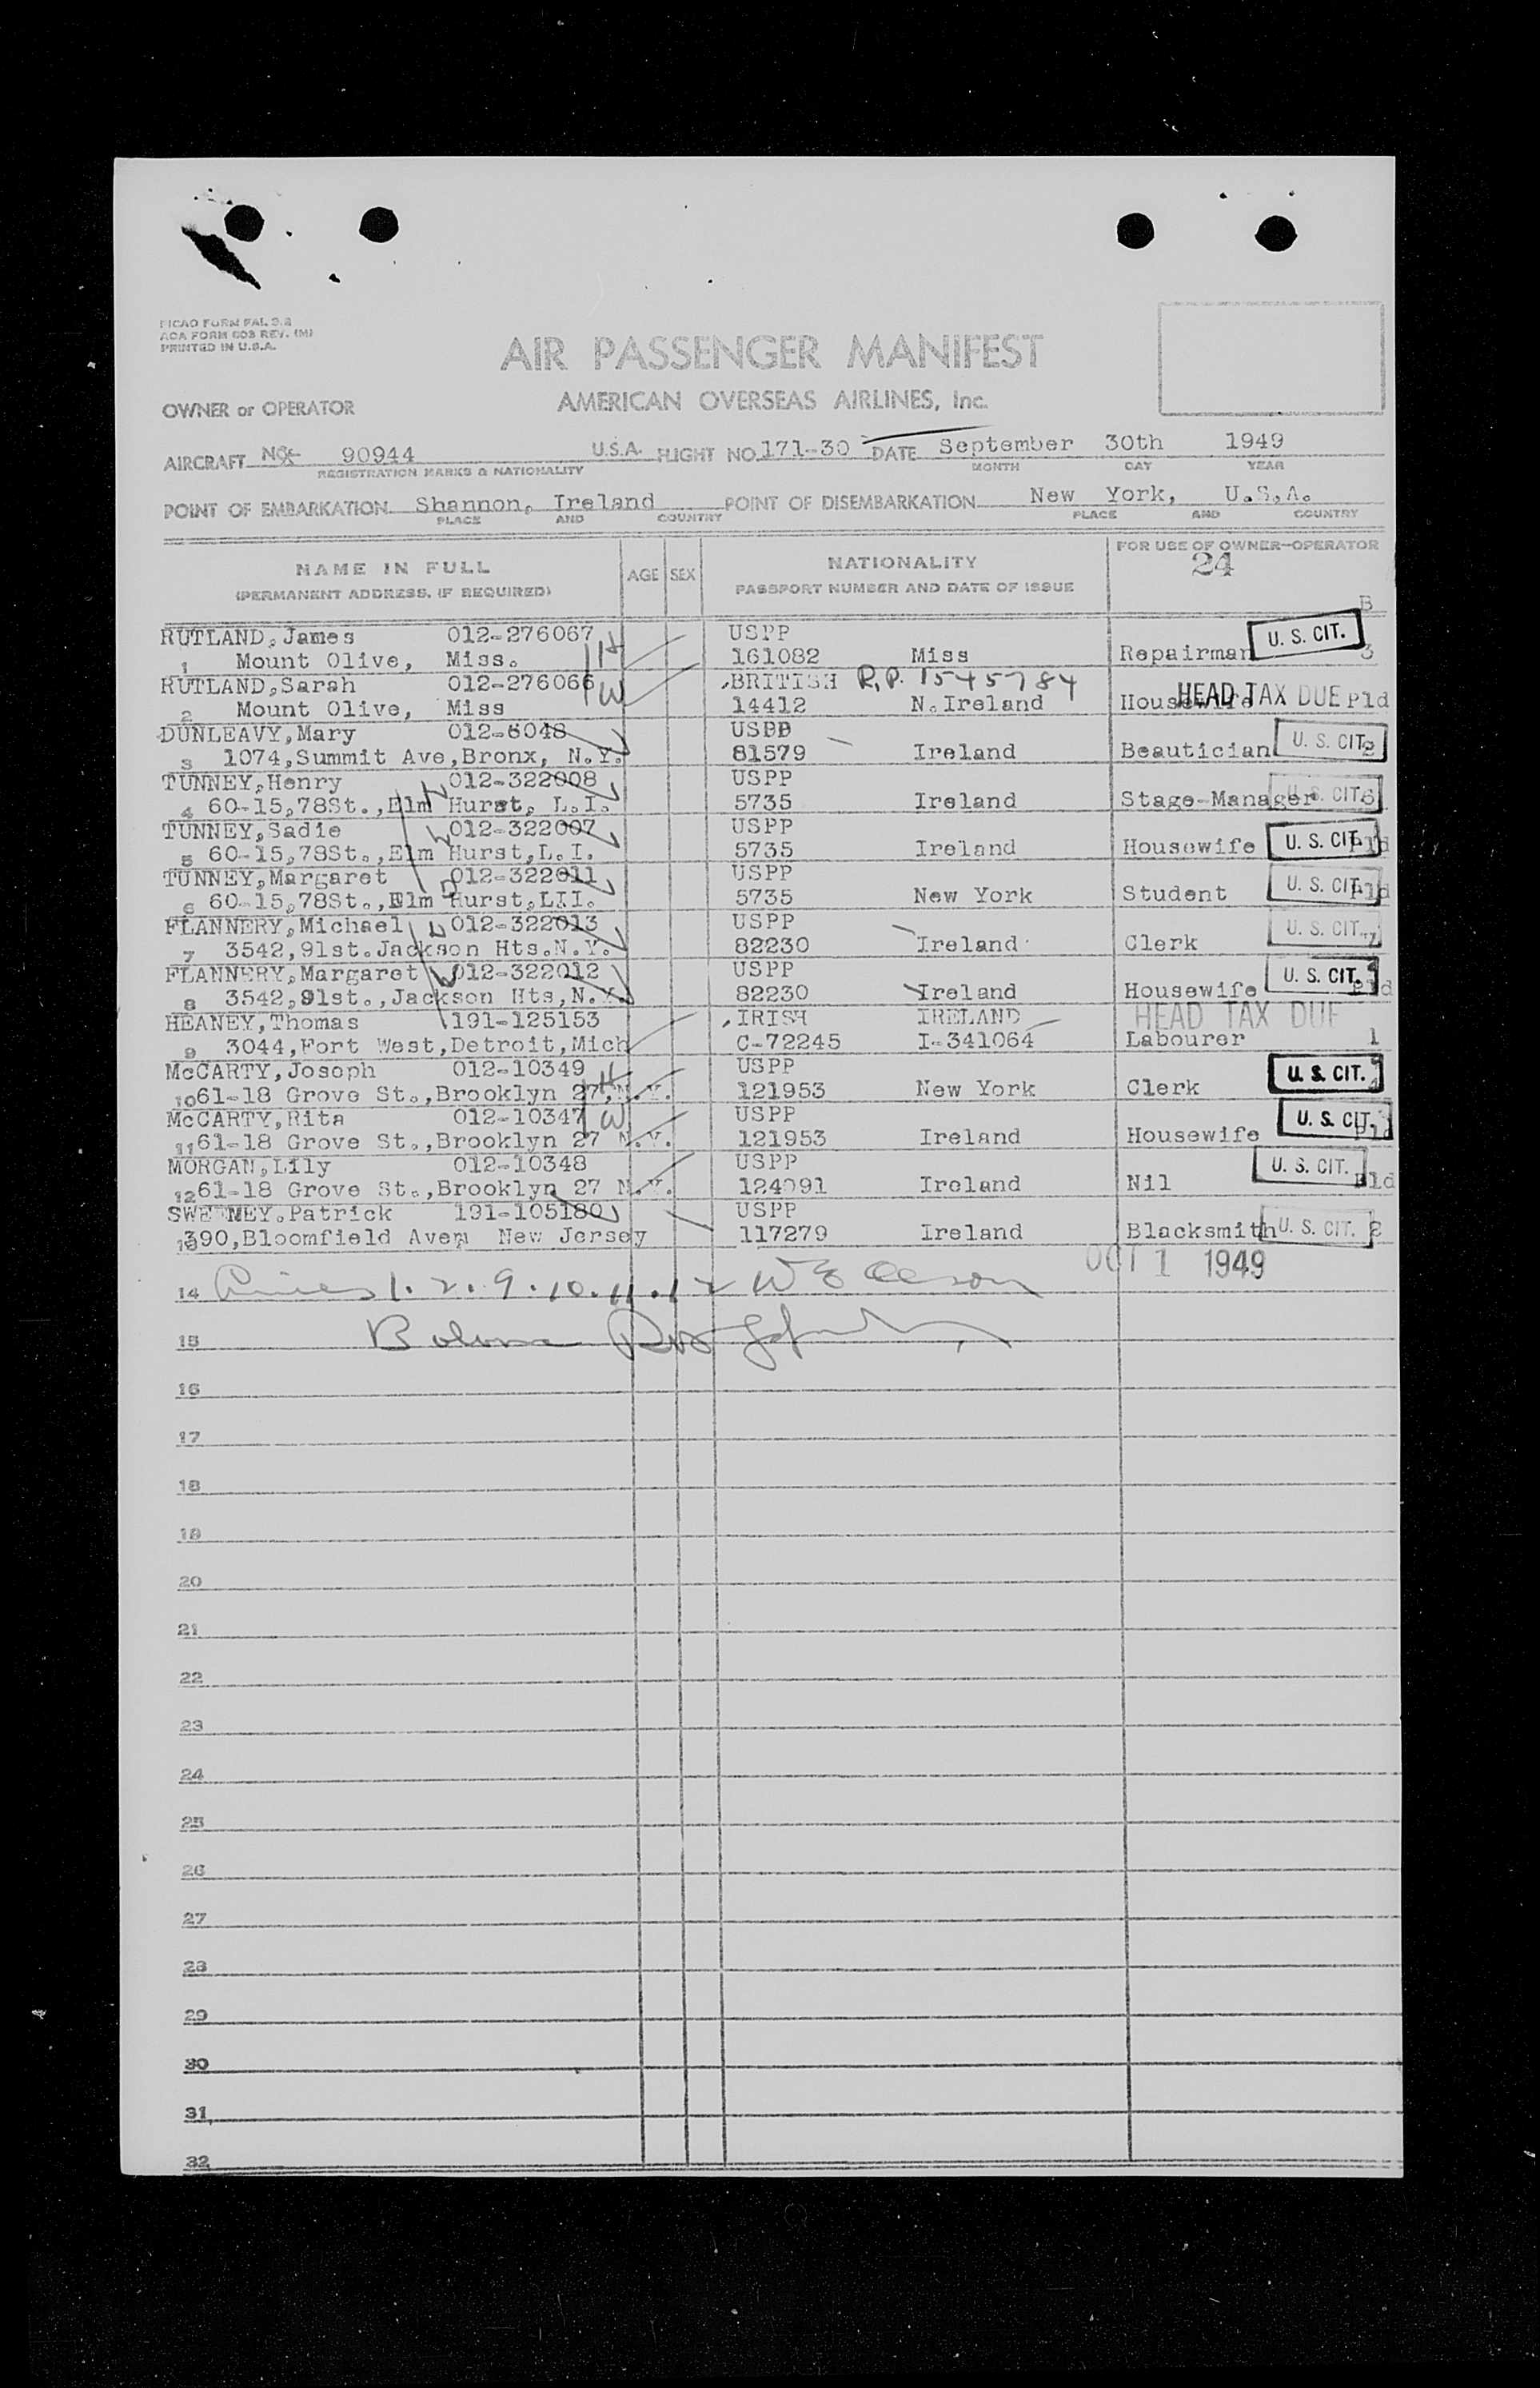 AIR PASSENGER MANIFEST
PRINTED IN U.S.A.
OWNER or OPERATOR AMERICAN OVERSEAS AIRLINES, Inc.
AIRCRAFT 90944 U.S.A. FLIGHT NO. 171-30 DATE September 30th 1949
REGISTRATION MARKS & NATIONALITY MONTH DAY YEAR
POINT OF EMBARKATION Shannon, Ireland POINT OF DISEMBARKATION New York, U.S.A.
PLACE AND COUNTRY PLACE AND COUNTRY
NAME IN FULL AGE SEX NATIONALITY FOR USE OF OWNER-OPERATOR
(PERMANENT ADDRESS, IF REQUIRED) PASSPORT NUMBER AND DATE OF ISSUE 24
B
RUTLAND, James 012-276067 H USPP U. S. CIT.
1 Mount Olive, Miss. 161082 Miss Repairman 3
RUTLAND, Sarah 012-276066 W BRITISH R.P. 1545784 HEAD TAX DUE
2 Mount Olive, Miss 14412 N. Ireland Housewife Pld
DUNLEAVY, Mary 012-6048 USPP U. S. CIT.
3 1074, Summit Ave, Bronx, N.Y. 81579 Ireland Beautician 2
TUNNEY, Henry 012-322008 USPP U. S. CIT.
4 60-15, 78St., Elm Hurst, L.I. 5735 Ireland Stage-Manager 6
TUNNEY, Sadie 012-322007 USPP U. S. CIT.
5 60-15, 78St., Elm Hurst, L.I. 5735 Ireland Housewife Pld
TUNNEY, Margaret 012-322011 USPP U. S. CIT.
6 60-15, 78St., Elm Hurst, LII. 5735 New York Student Pld
FLANNERY, Michael 012-322013 USPP U. S. CIT.
7 3542, 91st. Jackson Hts. N.Y. 82230 Ireland Clerk
FLANNERY, Margaret 012-322012 USPP U. S. CIT.
8 3542, 91st., Jackson Hts, N.Y. 82230 Ireland Housewife Pld
HEANEY, Thomas 191-125153 IRISH IRELAND HEAD TAX DUE
9 3044, Fort West, Detroit, Mich C-72245 I-341064 Labourer 1
McCARTY, Joseph 012-10349 H USPP U. S. CIT.
10 61-18 Grove St., Brooklyn 27, N.Y. 121953 New York Clerk
McCARTY, Rita 012-10347 W USPP U. S. CIT.
11 61-18 Grove St., Brooklyn 27 N.Y. 121953 Ireland Housewife Pld
MORGAN, Lily 012-10348 USPP U. S. CIT.
12 61-18 Grove St., Brooklyn 27 N.Y. 124091 Ireland Nil Pld
SWEENEY. Patrick 191-105180 USPP U. S. CIT.
13 390, Bloomfield Aven New Jersey 117279 Ireland Blacksmith 2
OCT 1 1949
14 1. 2. 9. 10. 11. 12
15
16
17
18
19
20
21
22
23
24
25
26
27
28
29
30
31
32